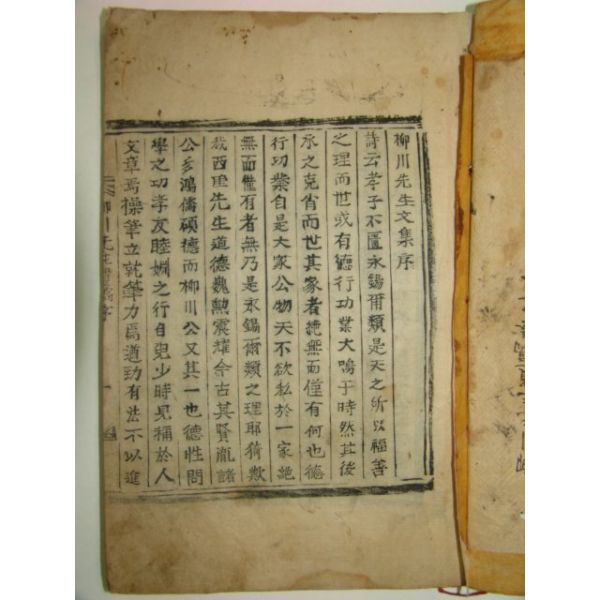 柳川先生文集序
詩云孝子不匱永錫爾類是天之所以福善
之理而世或有德行功業大鳴于時然其後
承之克肖而世其家者絶無而僅有何也德
行功業自是大家公物天不欲私於一家絶
無而僅有者無乃是永錫爾類之理耶猗歟
哉西厓先生道德巍勲震耀今古其賢胤諸
公多鴻儒碩德而柳川公又其一也德性問
學之功孝友睦婣之行自兒少時見稱於人
文章焉操筆立就筆力焉遒勁有法不以進
柳川先生文集序
一